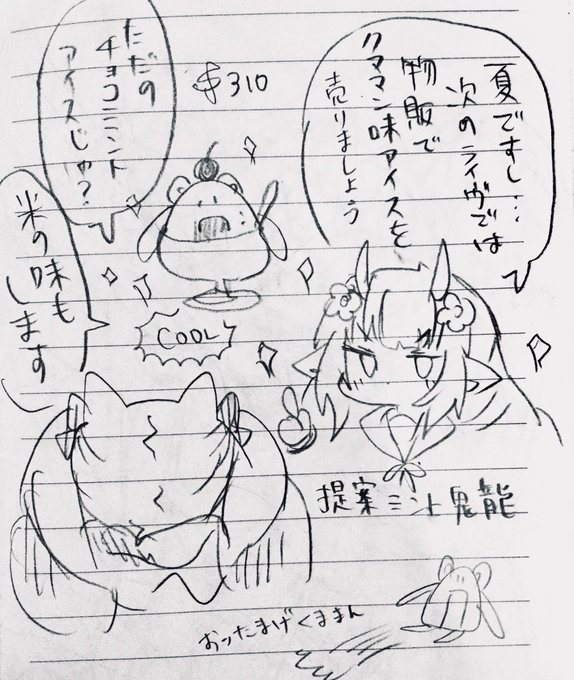 夏ですし…
次のライヴでは
物販で
クママン味アイスを
売りましょう
$310
ただの
チョコミント
アイスじゃ？
米の味も
します
COOL
提案ミント鬼龍
おったまげくままん